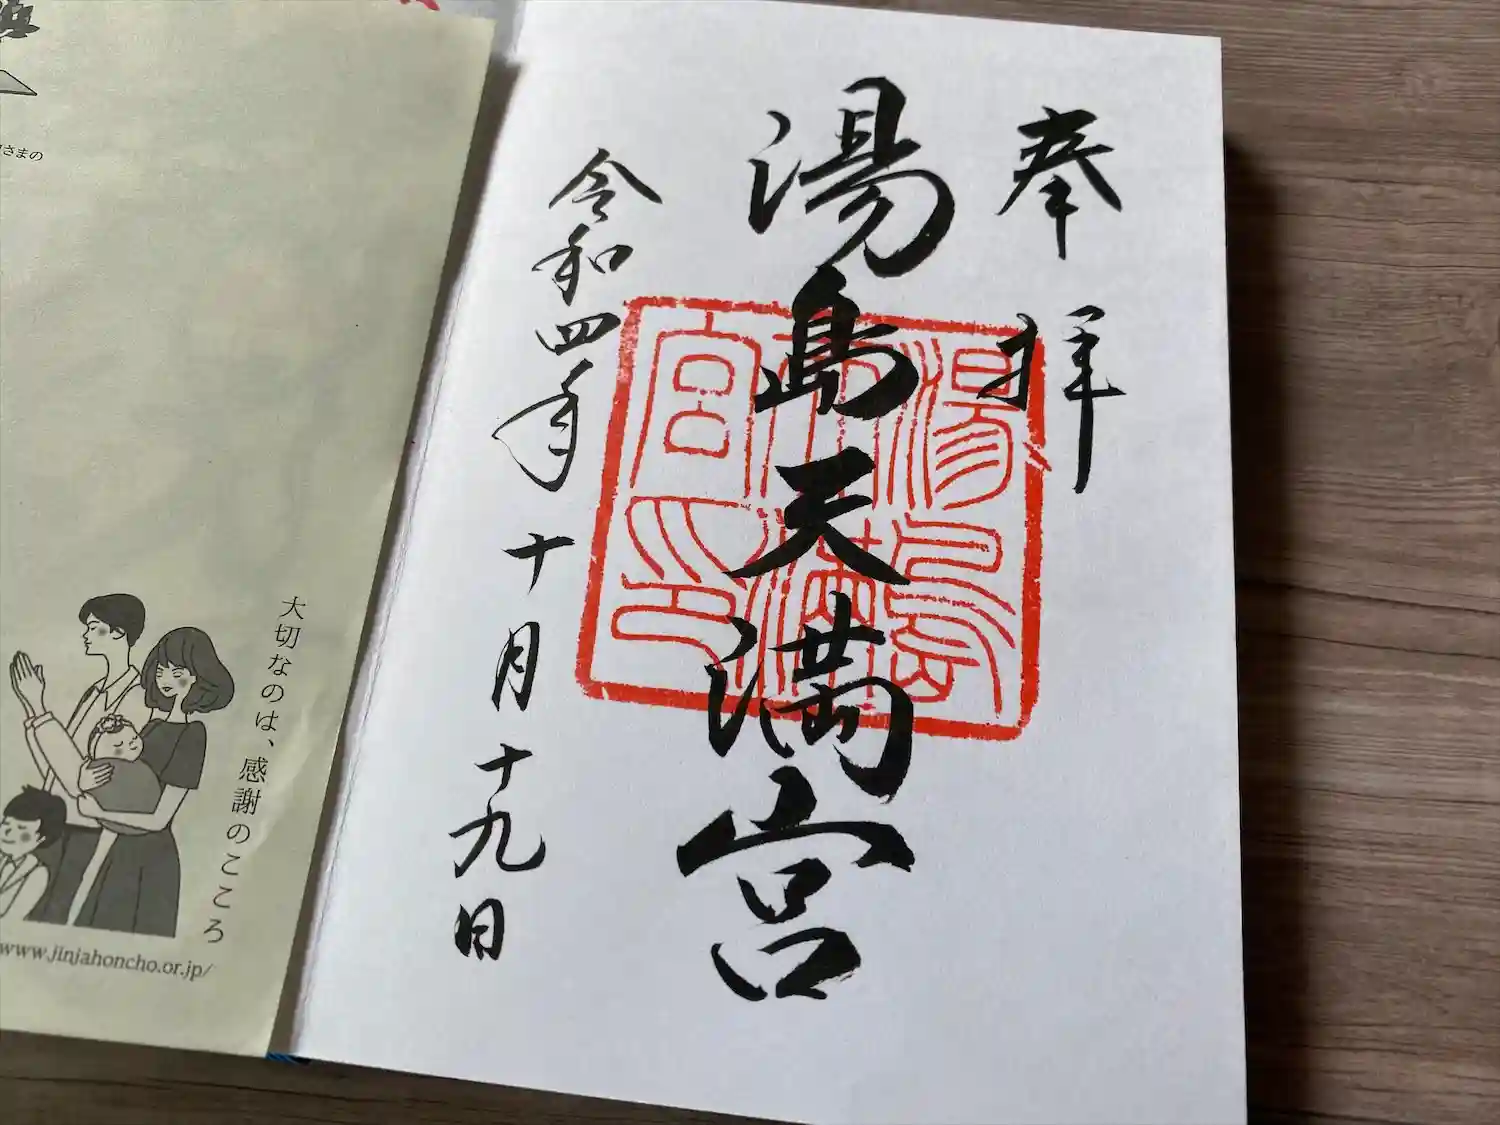 奉拝
湯島天満宮
令和四年十月十九日
湯島天満宮印
さまの
大切なのは、感謝のこころ
www.jinjahoncho.or.jp/